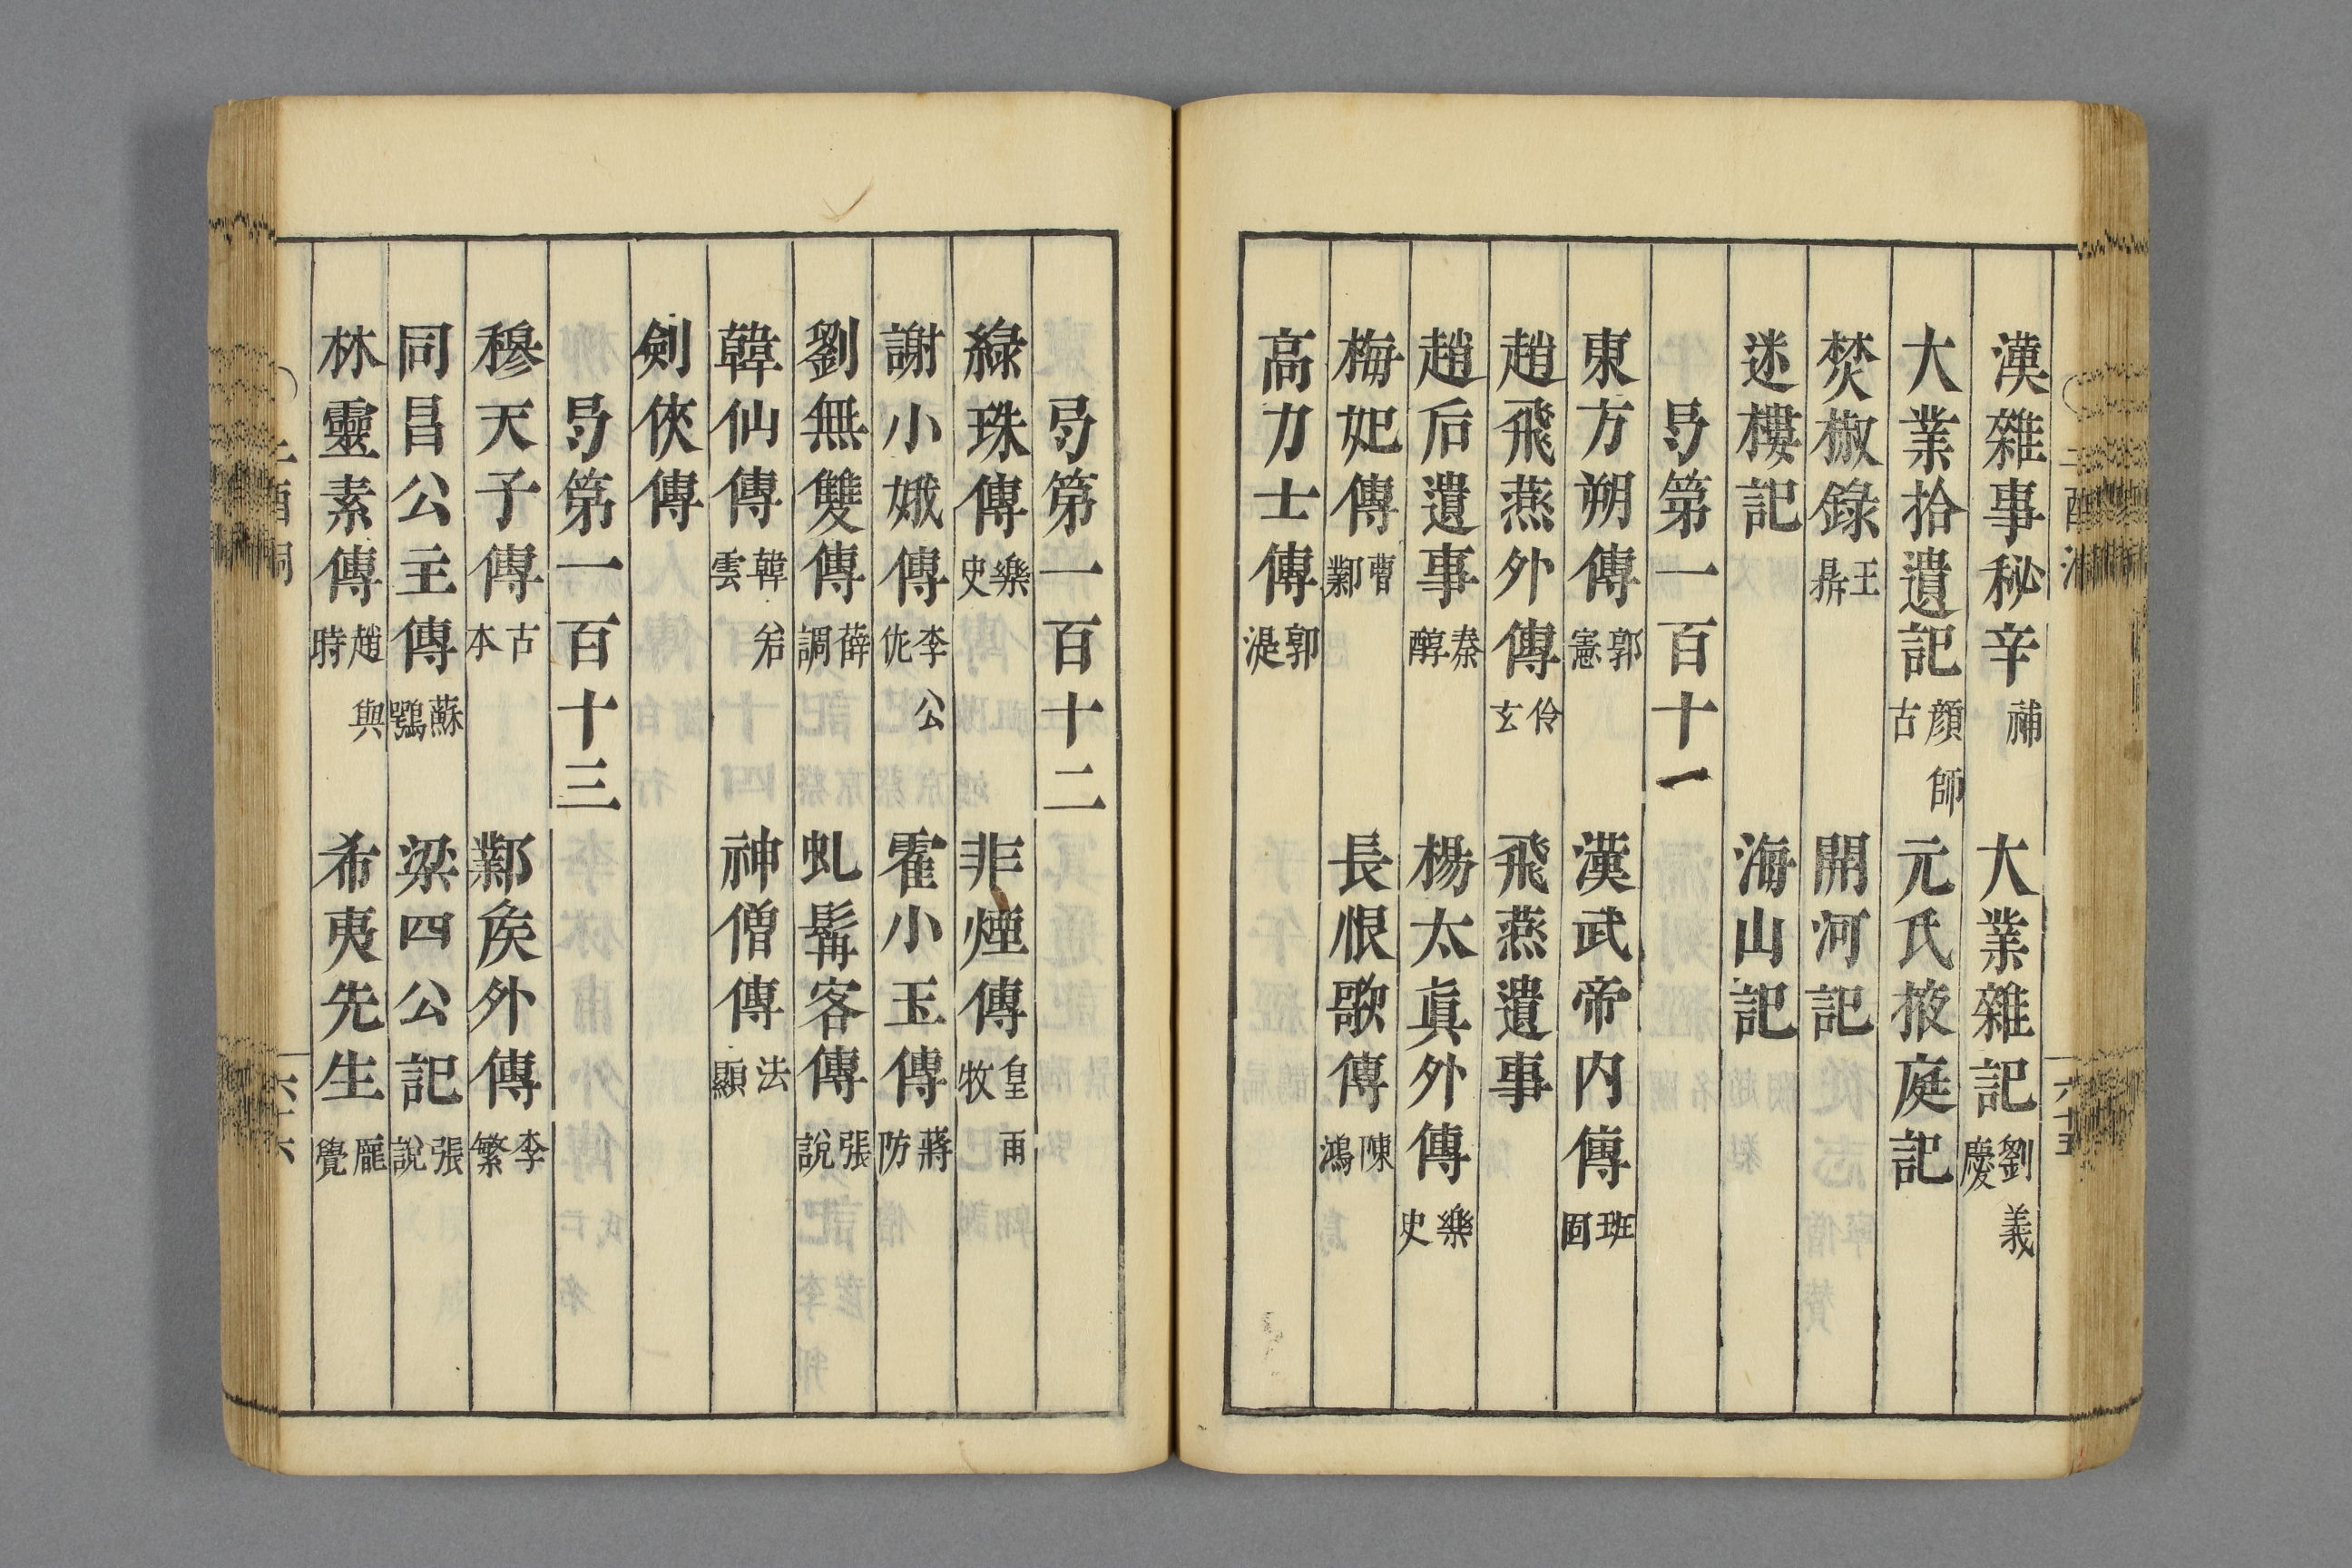 漢雜事秘辛 補 大業雜記 劉義慶
大業拾遺記 顏師古 元氏掖庭記
焚椒錄 王鼎 開河記
迷樓記 海山記
弓第一百十一
東方朔傳 郭憲 漢武帝內傳 班固
趙飛燕外傳 伶玄 飛燕遺事
趙后遺事 秦醇 楊太眞外傳 樂史
梅妃傳 曹鄴 長恨歌傳 陳鴻
高力士傳 郭湜
弓第一百十二
綠珠傳 樂史 非煙傳 皇甫牧
謝小娥傳 李公佐 霍小玉傳 蔣防
劉無雙傳 薛調 虬髯客傳 張說
韓仙傳 韓若雲 神僧傳 法顯
劍俠傳
弓第一百十三
穆天子傳 古本 鄴矦外傳 李繁
同昌公主傳 蘇鶚 梁四公記 張說
林靈素傳 趙與時 希夷先生 龎覺